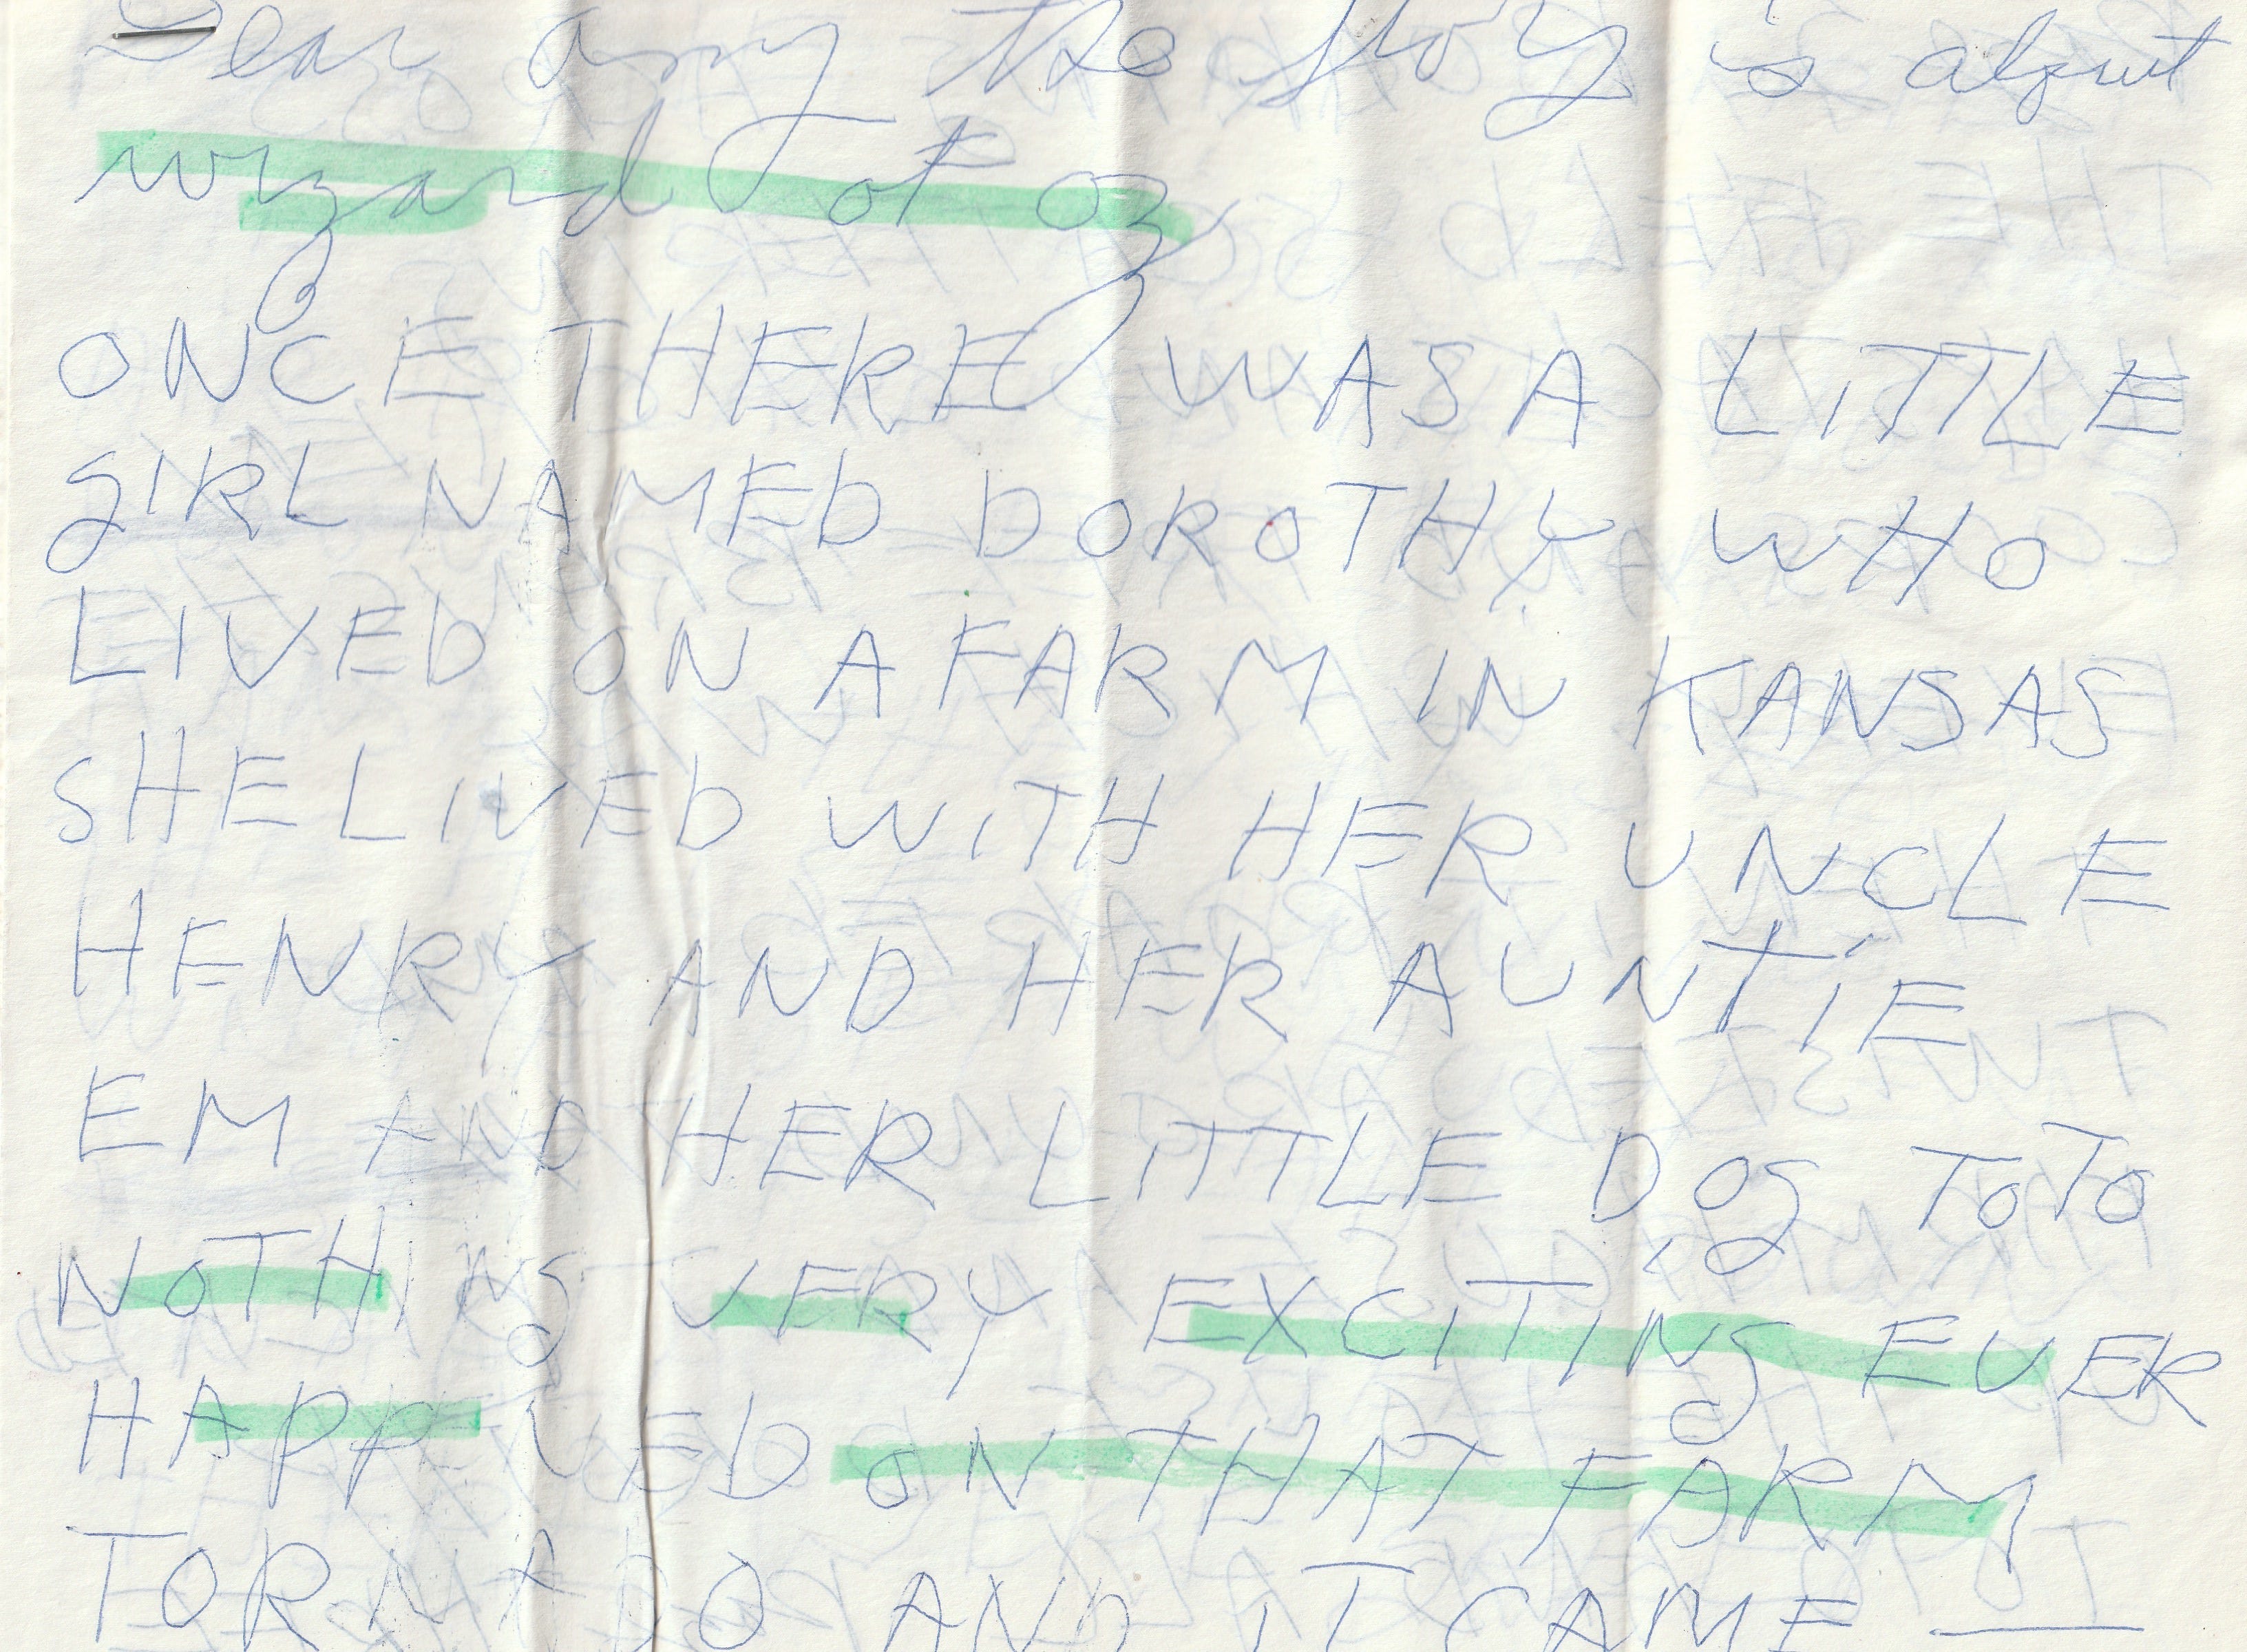 Dear amy the story is about
wizard of oz
ONCE THERE WAS A LiTTLE
gIRL NAMED DOROTHY WHO
LIVED ON A FARM IN KANSAS
SHE LIVED WiTH HER UNCLE
HENRY AND HER AUNTiE
EM AND HER LiTTLE DOg ToTo
NOTHiNg VERY EXCiTiNg EVER
HAppENED ON THAT FARM
TORNADO AND IT CAME